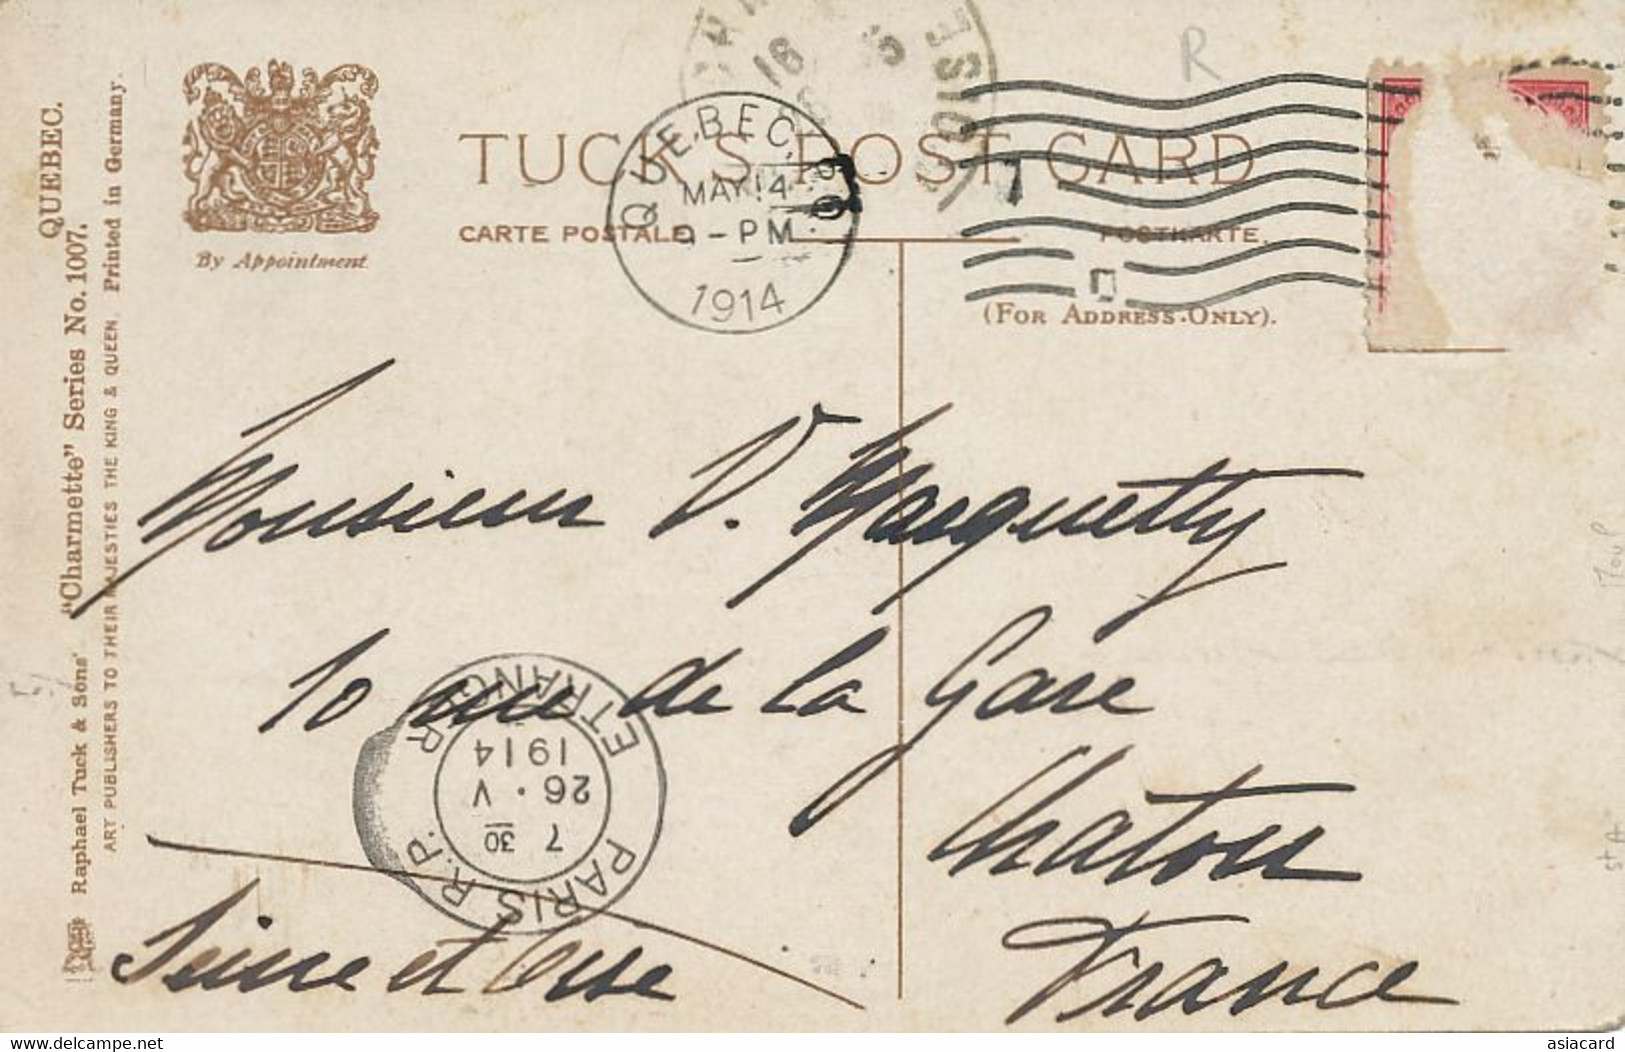 QUEBEC.
Raphael Tuck & Sons' "Charmette" Series No. 1007.
ART PUBLISHERS TO THEIR MAJESTIES THE KING & QUEEN. Printed in Germany.
By Appointment
TUCK'S POST CARD
CARTE POSTALE. POSTKARTE.
(FOR ADDRESS ONLY).
QUEBEC,
MAY 14
PM
1914
OISE
R
Monsieur V. Marquetty
10 rue de la Gare
Chatou
Seine et Oise
France
PARIS R.P.
7 30
26 . V
1914
ETRANGER
asiacard
www.delcampe.net